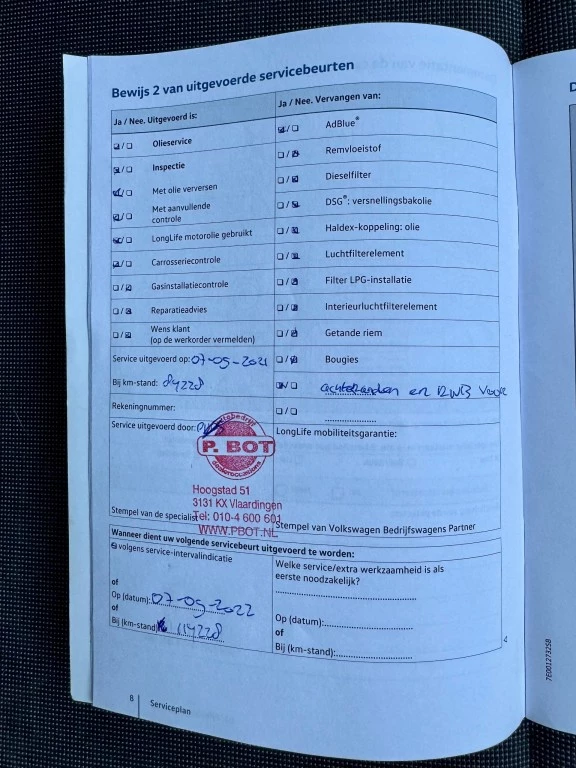 Bewijs 2 van uitgevoerde servicebeurten
Ja / Nee. Uitgevoerd is:
Ja / Nee. Vervangen van:
Olieservice
Inspectie
Met olie verversen
Met aanvullende
controle
LongLife motorolie gebruikt
Carrosseriecontrole
Gasinstallatiecontrole
Reparatieadvies
Wens klant
(op de werkorder vermelden)
AdBlue®
Remvloeistof
Dieselfilter
DSG®: versnellingsbakolie
Haldex-koppeling: olie
Luchtfilterelement
Filter LPG-installatie
Interieurluchtfilterelement
Getande riem
Bougies
achterbanden en RWB voor
Service uitgevoerd op: 07-09-2021
Bij km-stand: 84228
Rekeningnummer:
Service uitgevoerd door:
P. BOT
Hoogstad 51
3131 KX Vlaardingen
Tel: 010-4 600 601
WWW.PBOT.NL
Stempel van de specialist
LongLife mobiliteitsgarantie:
Stempel van Volkswagen Bedrijfswagens Partner
Wanneer dient uw volgende servicebeurt uitgevoerd te worden:
volgens service-intervalindicatie
of
Op (datum): 07-09-2022
of
Bij (km-stand) 114228
Welke service/extra werkzaamheid is als
eerste noodzakelijk?
Op (datum):
of
Bij (km-stand):
8
Serviceplan
7E0012732SB
D